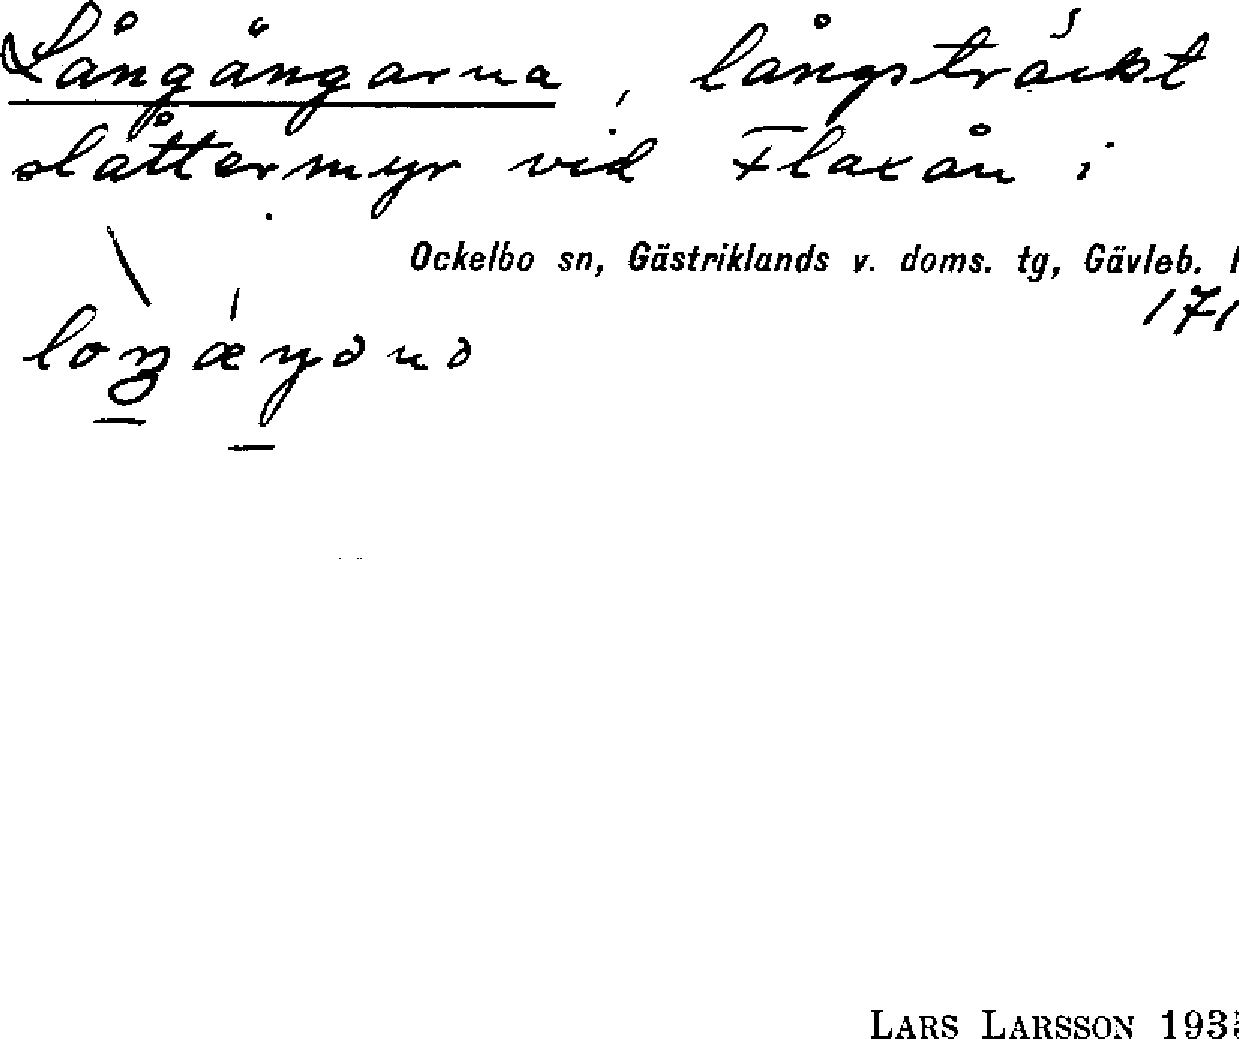 Långängarna, långsträckt
slåttermyr vid Flaxån i
Ockelbo sn, Gästriklands v. doms. tg, Gävleb.
171
LARS LARSSON 193